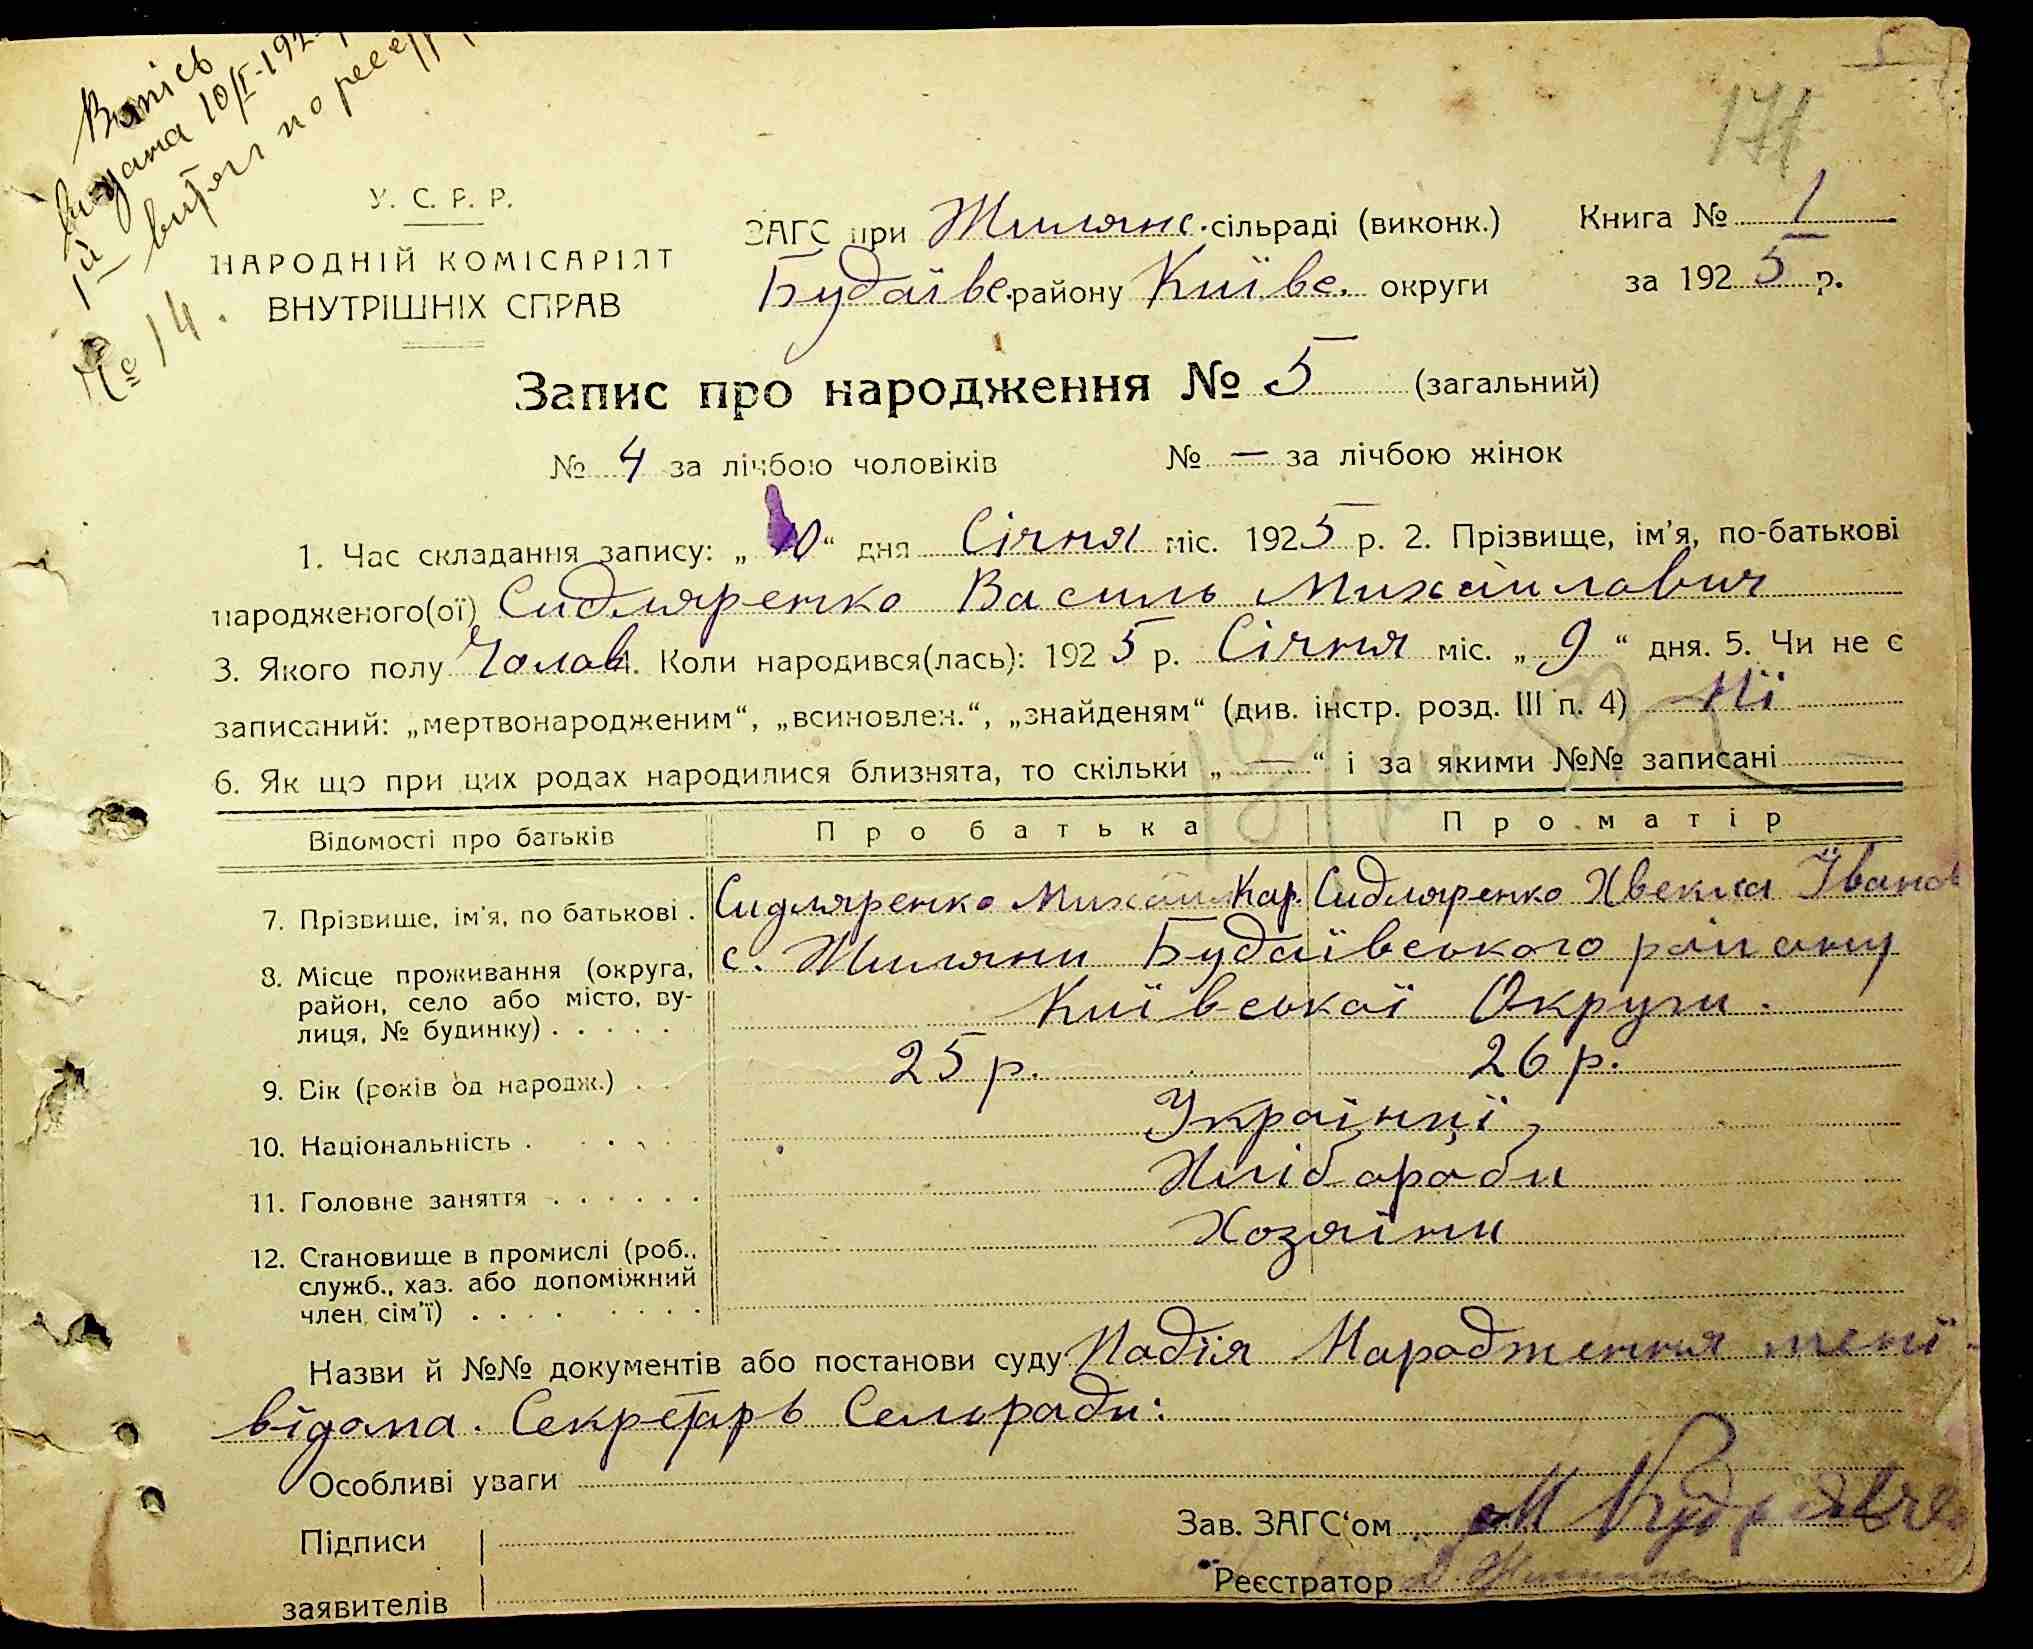 Виписъ
видана 10/I-192
1й витяг по реєстр
№ 14.
171
У. С. Р. Р.
НАРОДНІЙ КОМІСАРІЯТ
ВНУТРІШНІХ СПРАВ
ЗАГС при Жилянс. сільраді (виконк.) Книга № 1
Будаївс. району Київс. округи за 1925 р.
Запис про народження № 5 (загальний)
№ 4 за лічбою чоловіків № — за лічбою жінок
1. Час складання запису: „10“ дня Січня міс. 1925 р. 2. Прізвище, ім'я, по-батькові
народженого(ої) Сидляренко Василь Михайлович
3. Якого полу Чолов 4. Коли народився(лась): 1925 р. Січня міс. „9“ дня. 5. Чи не є
записаний: „мертвонародженим“, „всиновлен.“, „знайденям“ (див. інстр. розд. III п. 4) Ні
6. Як що при цих родах народилися близнята, то скільки „—“ і за якими №№ записані
Відомості про батьків Про батька Про матір
7. Прізвище, ім'я, по батькові . Сидляренко Михайл Кар. Сидляренко Хвекла Іванов
8. Місце проживання (округа, район, село або місто, ву-лиця, № будинку) . . . . . с. Жиляни Будаївського району
Київської Округи.
9. Вік (років од народж.) . . 25 р. 26 р.
10. Національність . . . . . Українці,
11. Головне заняття . . . . . . Хлібороби
12. Становище в промислі (роб., служб., хаз. або допоміжний член сім'ї) . . . . . . . . Хозяїни
Назви й №№ документів або постанови суду Подія Народження мені
відома. Секретарь Сельради:
Особливі уваги
Підписи
заявителів
Зав. ЗАГС'ом М Кудрявче
Реєстратор